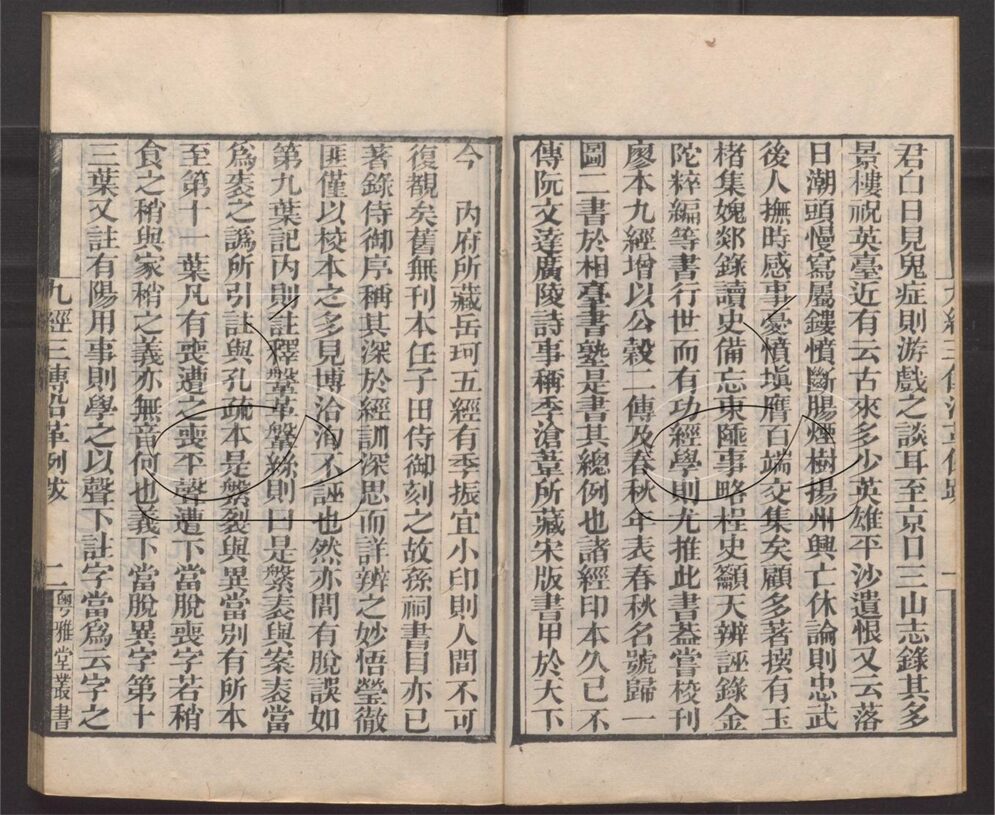 君白日見鬼症則游戲之談耳至京口三山志錄其多
景樓祝英臺近有云古來多少英雄平沙遺恨又云落
日潮頭慢寫屬鏤憤斷腸煙樹揚州興亡休論則忠武
後人撫時感事憂憤塡膺百端交集矣顧多著撰有玉
楮集媿郯錄讀史備忘東陲事略桯史籲天辨誣錄金
陀粹編等書行世而有功經學則尤推此書葢嘗校刊
廖本九經增以公穀二傳及春秋年表春秋名號歸一
圖二書於相臺書塾是書其總例也諸經印本久已不
傳阮文達廣陵詩事稱季滄葦所藏宋版書甲於天下
今 內府所藏岳珂五經有季振宜小印則人間不可
復覩矣舊無刊本任子田侍御刻之故孫祠書目亦已
著錄侍御序稱其深於經訓深思而詳辨之妙悟瑩徹
匪僅以校本之多見博洽洵不誣也然亦間有脫誤如
第九葉記內則註釋鞶革鞶絲則曰是縏袠與案袠當
爲裘之譌所引註與孔疏本是縏裂與異當別有所本
至第十一葉凡有喪遭之喪平聲遭下當脫喪字若稍
食之稍與家稍之義亦無音何也義下當脫異字第十
三葉又註有陽用事則學之以聲下註字當爲云字之
九經三傳沿革例跋 二 粵雅堂叢書